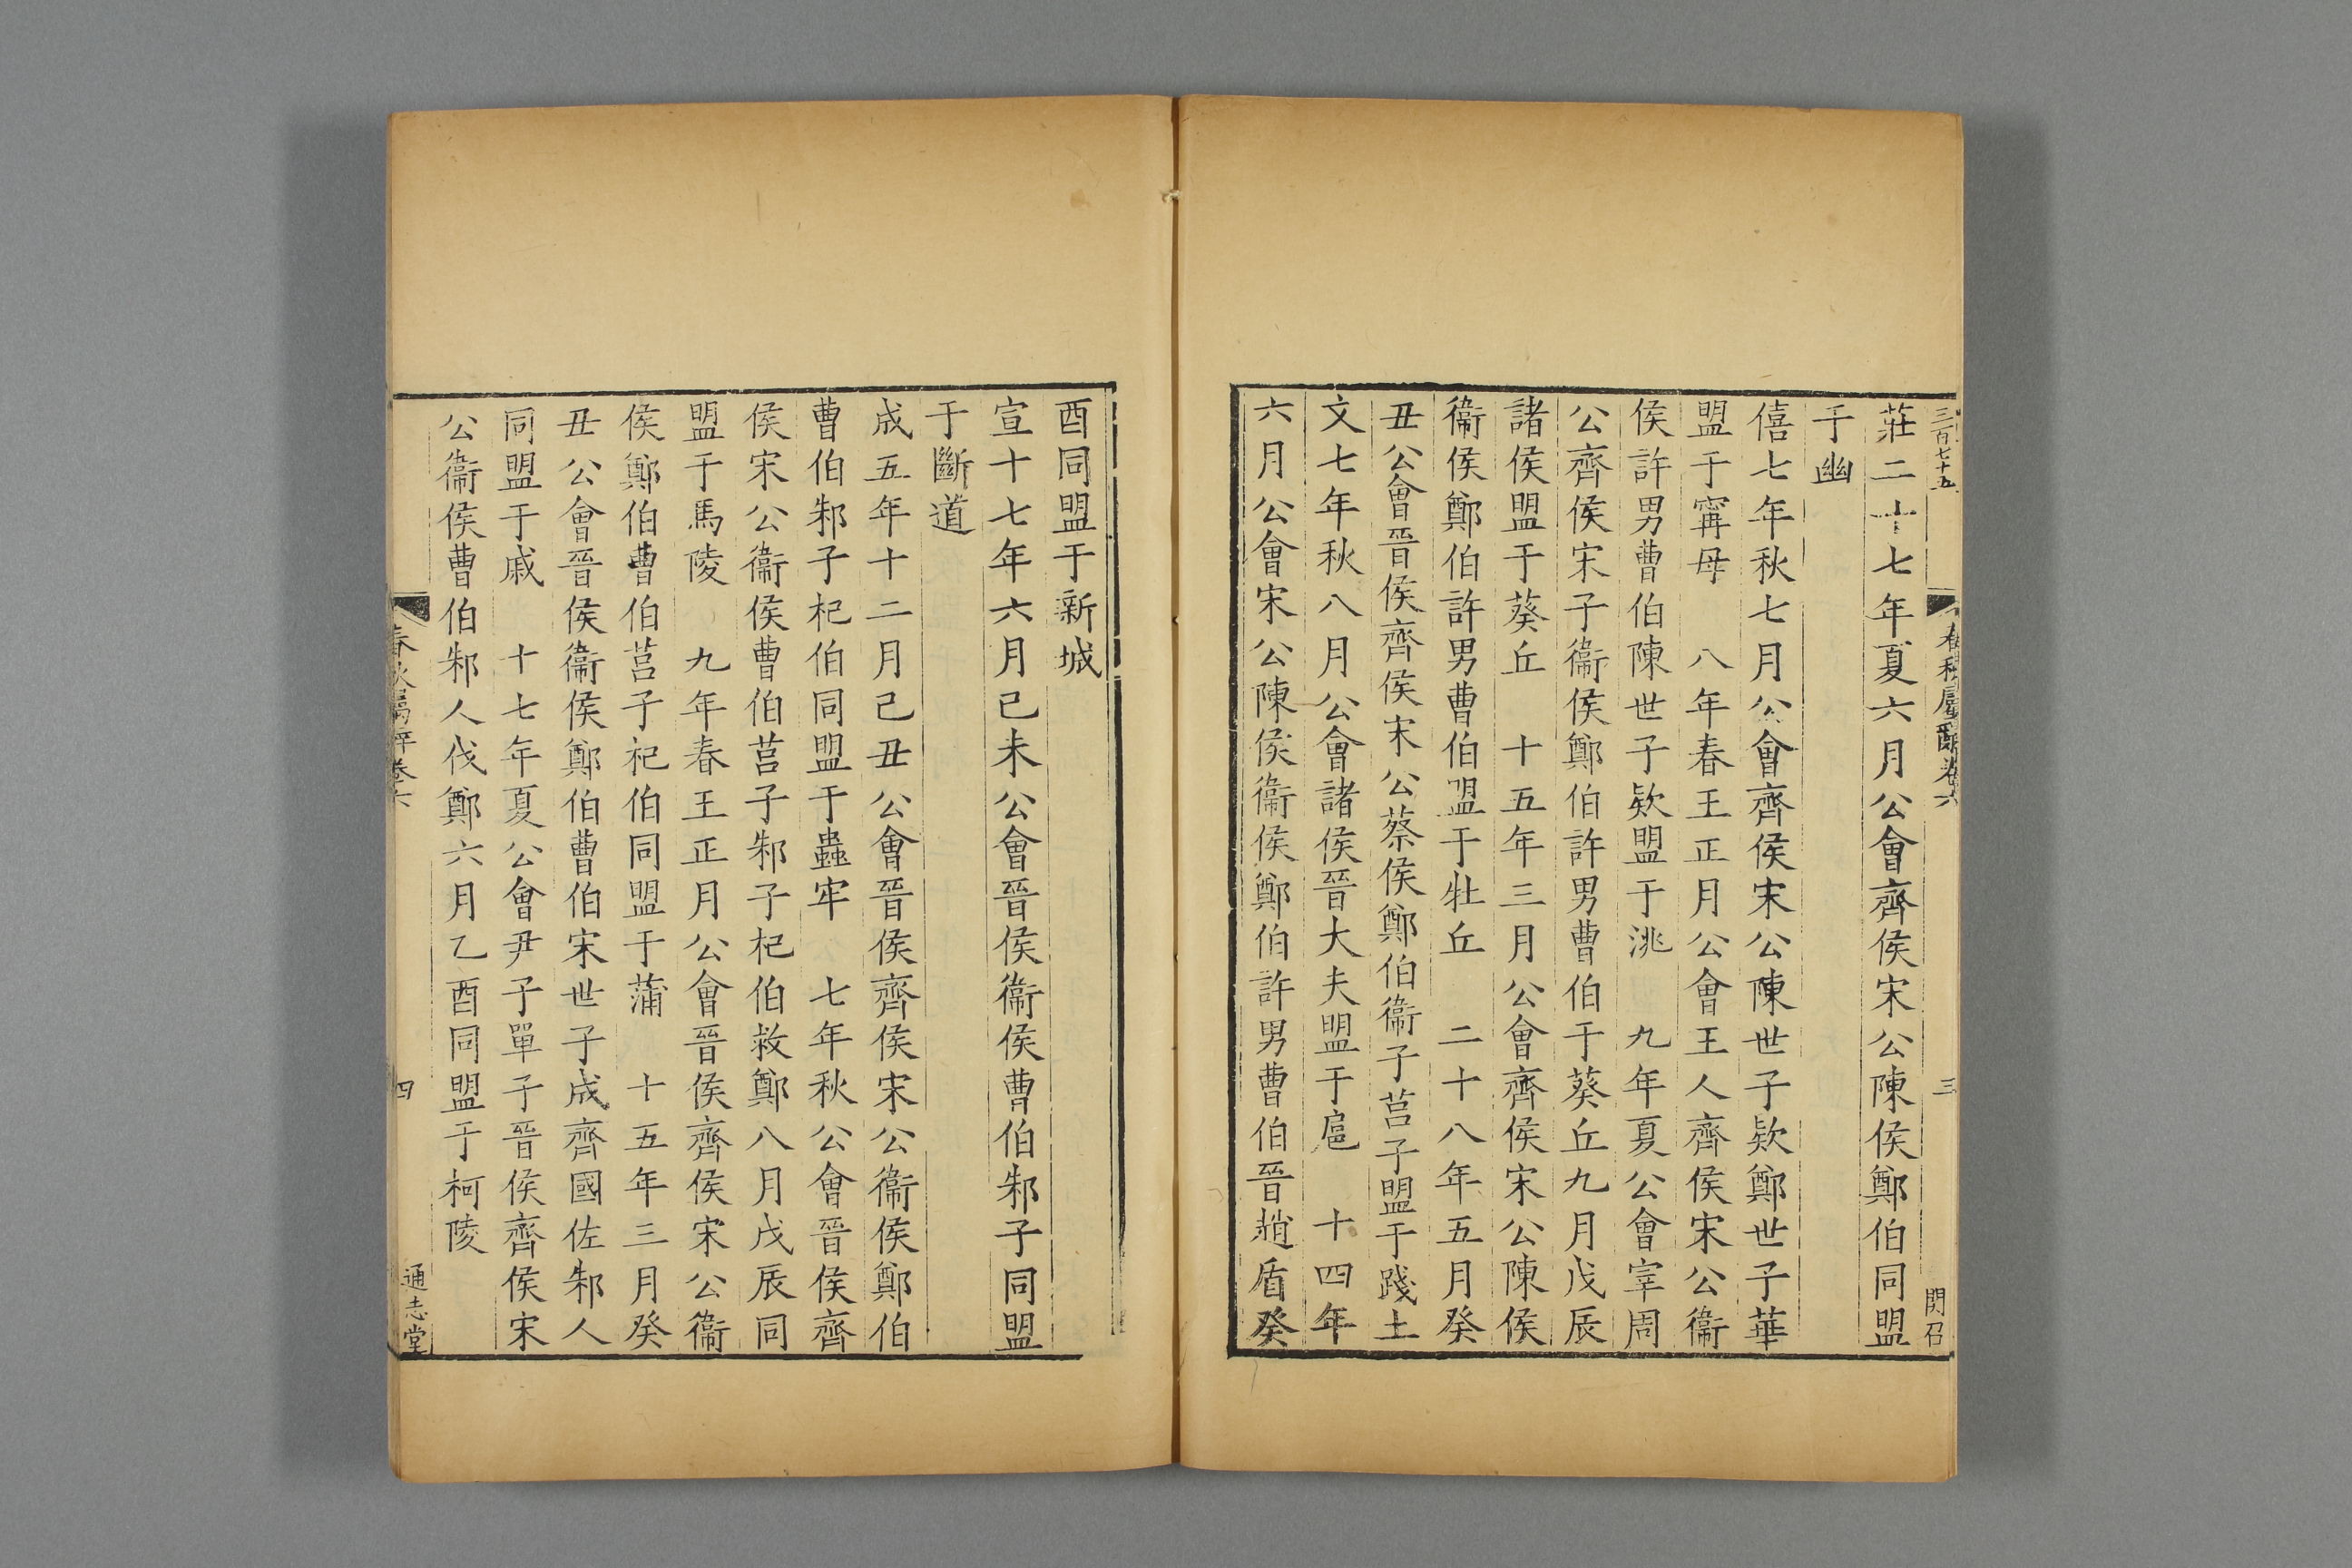 三百七十五
春秋屬辭卷六
三
関召
莊二十七年夏六月公會齊侯宋公陳侯鄭伯同盟
于幽
僖七年秋七月公會齊侯宋公陳世子欵鄭世子華
盟于寗母　八年春王正月公會王人齊侯宋公衞
侯許男曹伯陳世子欵盟于洮　九年夏公會宰周
公齊侯宋子衞侯鄭伯許男曹伯于葵丘九月戊辰
諸侯盟于葵丘　十五年三月公會齊侯宋公陳侯
衞侯鄭伯許男曹伯盟于牡丘　二十八年五月癸
丑公會晉侯齊侯宋公蔡侯鄭伯衞子莒子盟于踐土
文七年秋八月公會諸侯晉大夫盟于扈　十四年
六月公會宋公陳侯衞侯鄭伯許男曹伯晉趙盾癸
酉同盟于新城
宣十七年六月己未公會晉侯衞侯曹伯邾子同盟
于斷道
成五年十二月己丑公會晉侯齊侯宋公衞侯鄭伯
曹伯邾子杞伯同盟于蟲牢　七年秋公會晉侯齊
侯宋公衞侯曹伯莒子邾子杞伯救鄭八月戊辰同
盟于馬陵　九年春王正月公會晉侯齊侯宋公衞
侯鄭伯曹伯莒子杞伯同盟于蒲　十五年三月癸
丑公會晉侯衞侯鄭伯曹伯宋世子成齊國佐邾人
同盟于戚　十七年夏公會尹子單子晉侯齊侯宋
公衞侯曹伯邾人伐鄭六月乙酉同盟于柯陵
春秋屬辭卷六
四
通志堂